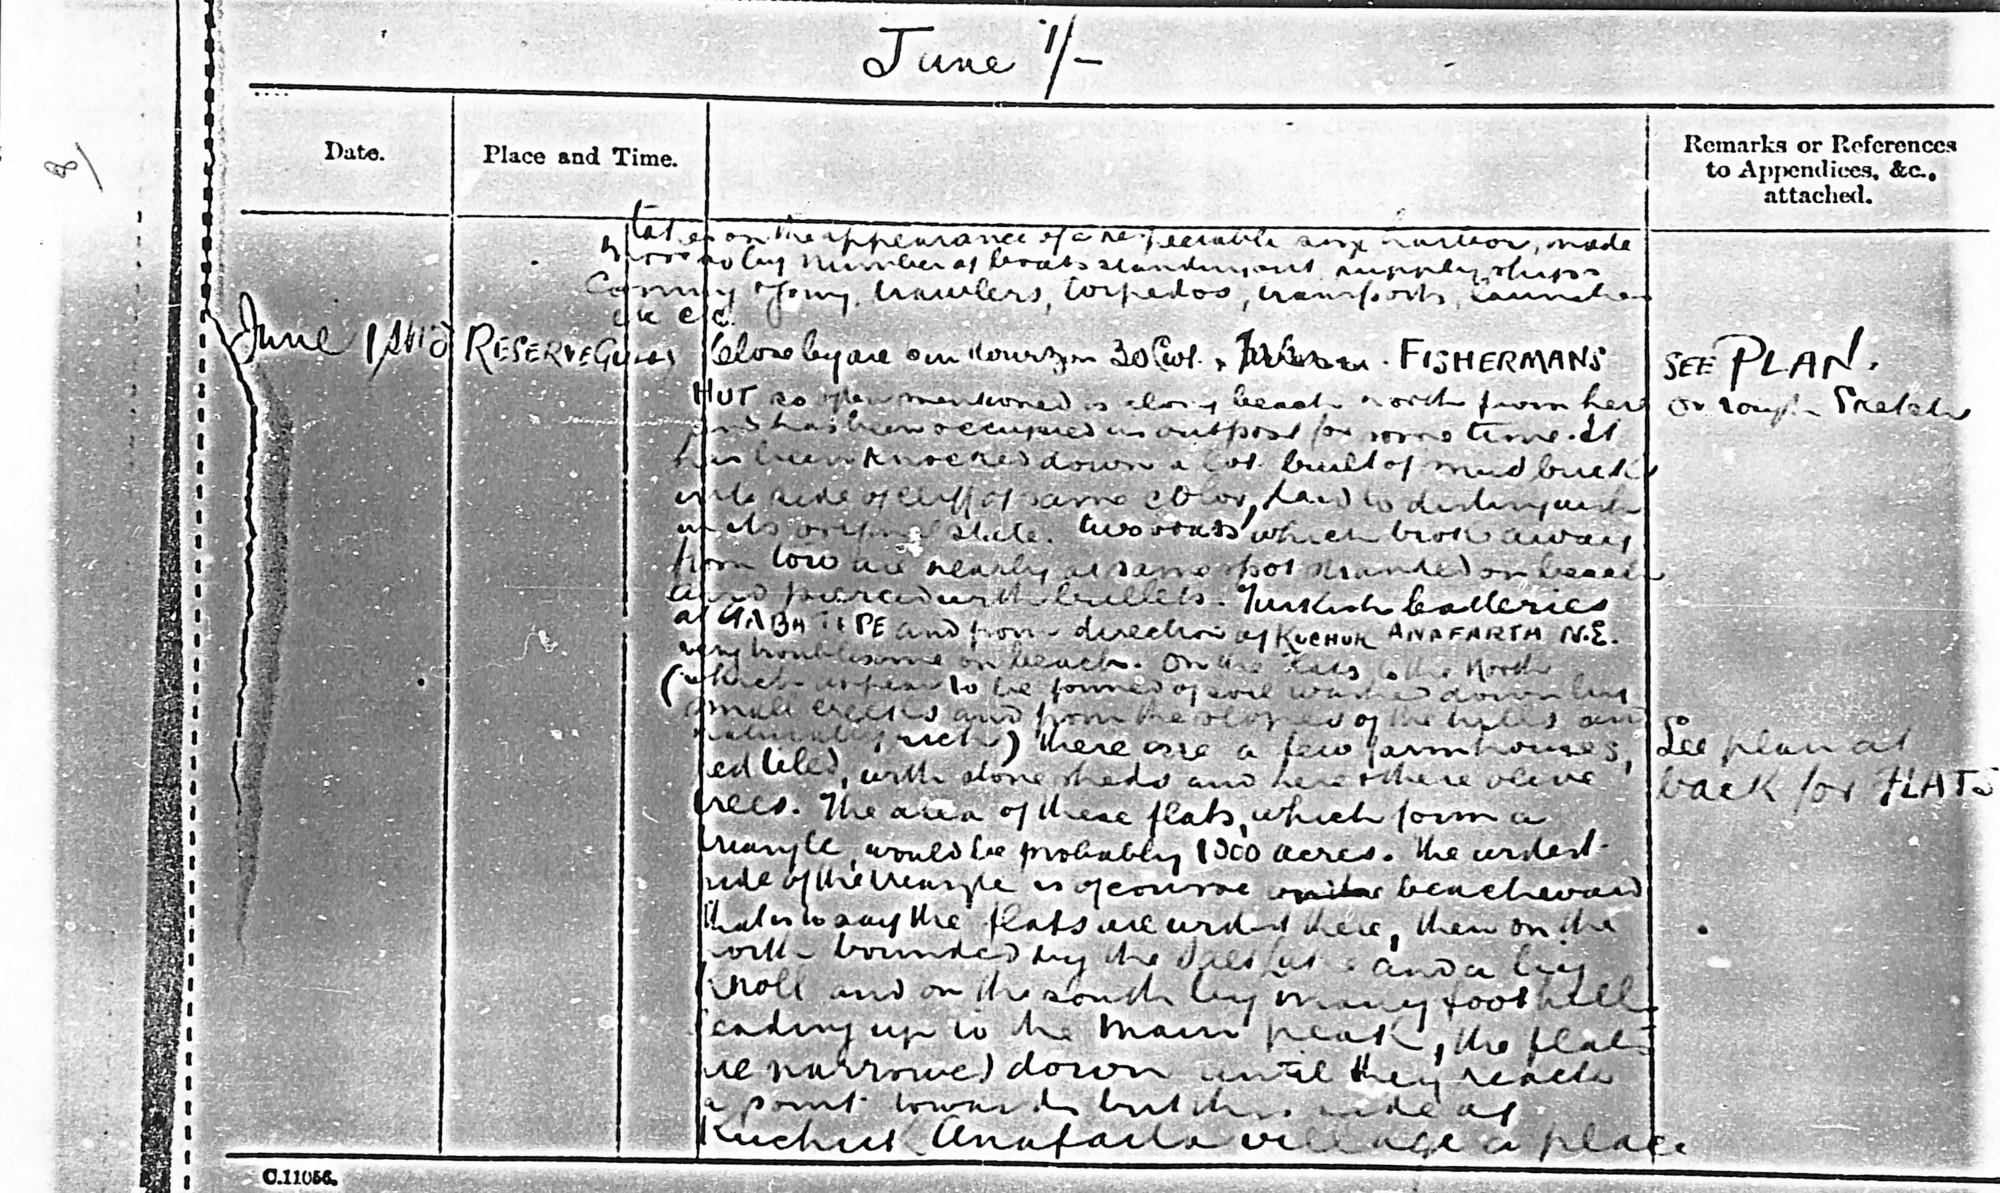 June 1/-
8/
Date.
Place and Time.
Remarks or References
to Appendices, &c.,
attached.
takes on the appearance of a respectable harbor, made
by number of boats standing out supply ships
Coming & going, trawlers, torpedos, transports, launches
etc etc.
June 1/ RESERVE GULLY Close by are our 30 Cwt. FISHERMANS
SEE PLAN.
HUT so often mentioned is along beach north from here
or rough Sketch
and has been occupied as outpost for some time. It
has been knocked down a lot built of mud bricks
into side of cliff of same color, hard to distinguish
in its original state. two boats which broke away
from tow are nearly at same spot stranded on beach
and pierced with bullets. Turkish batteries
at GABA TEPE and from direction of KUCHUK ANAFARTA N.E.
very troublesome on beach. On the flats to the North
(which appear to be formed of soil washed down by
small creeks and from the slopes of the hills and
naturally rich) there are a few farm houses,
See plan at
red tiled, with stone sheds and here & there olive
back for FLATS
trees. The area of these flats, which form a
triangle, would be probably 1000 acres. The widest
side of the triangle is of course beachward
that is to say the flats are widest there, then on the
north bounded by the Salt Lake and a big
knoll and on the south by many foothills
leading up to the main peak, the flats
are narrowed down until they reach
a point towards but this side of
Kuchuk Anafarta village a place
C.11056.